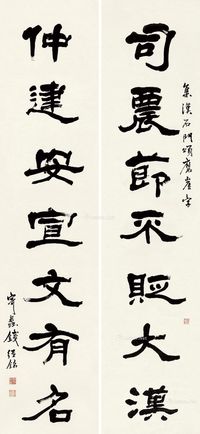 集漢石門頌磨崖字
司農節不貶大漢
仲建安宣文有名
錢經銘